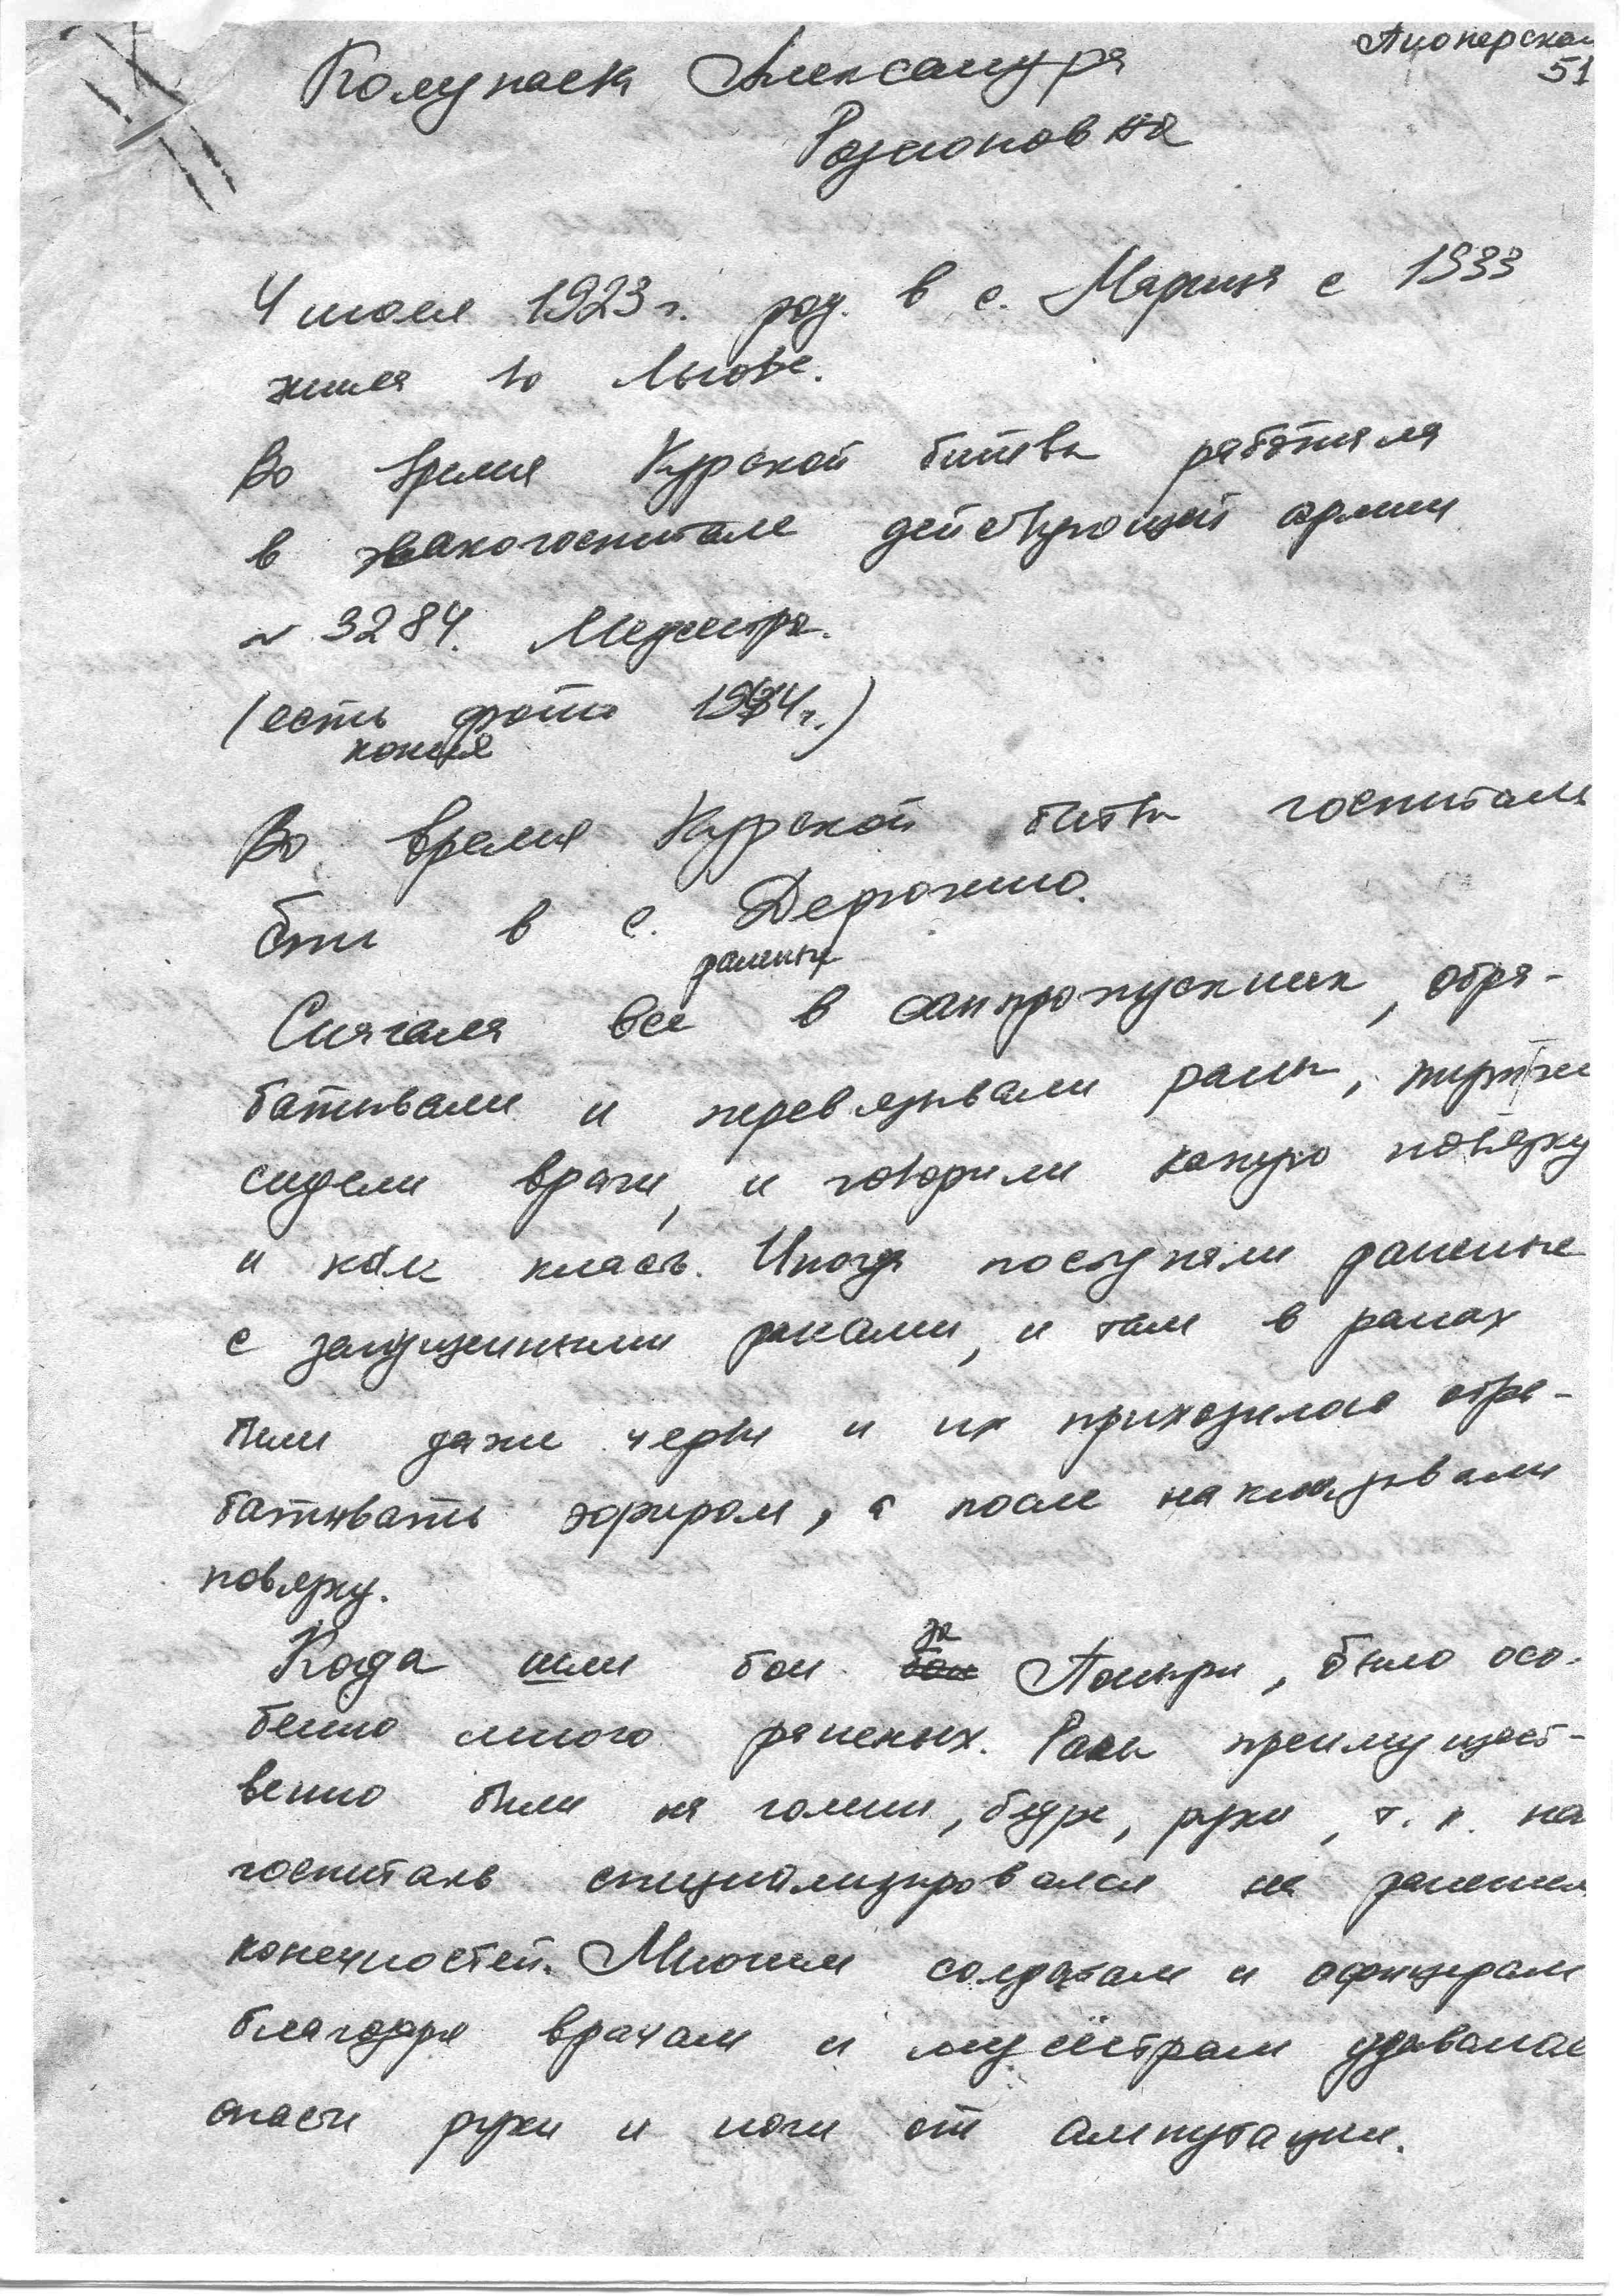 Пионерская
51
Александра
Родионовна
4 июля 1923 г. род. в с. Марица с 1933
жила во Льгове.
Во время Курской битвы работала
в эвакогоспитале действующей армии
№ 3284. Медсестра.
(есть фото 1944 г.)
копия
Во время Курской битвы госпиталь
был в с. Дерюгино.
раненые
Сначала все в санпропускник, обра-
батывали и перевязывали раны,
сидели врачи, и говорили какую повязку
и как класть. Иногда поступали раненые
с запущенными ранами, и там в ранах
были даже черви и их приходилось обра-
батывать эфиром, а после накладывали
повязку.
за
Когда шли бои Поныри, было осо-
бенно много раненых. Раны преимущест-
венно были на голени, бедре, руки, т.к. на
госпиталь специализировался на ранении
конечностей. Многим солдатам и офицерам
благодаря врачам и медсёстрам удавалос
спасти руки и ноги от ампутации.